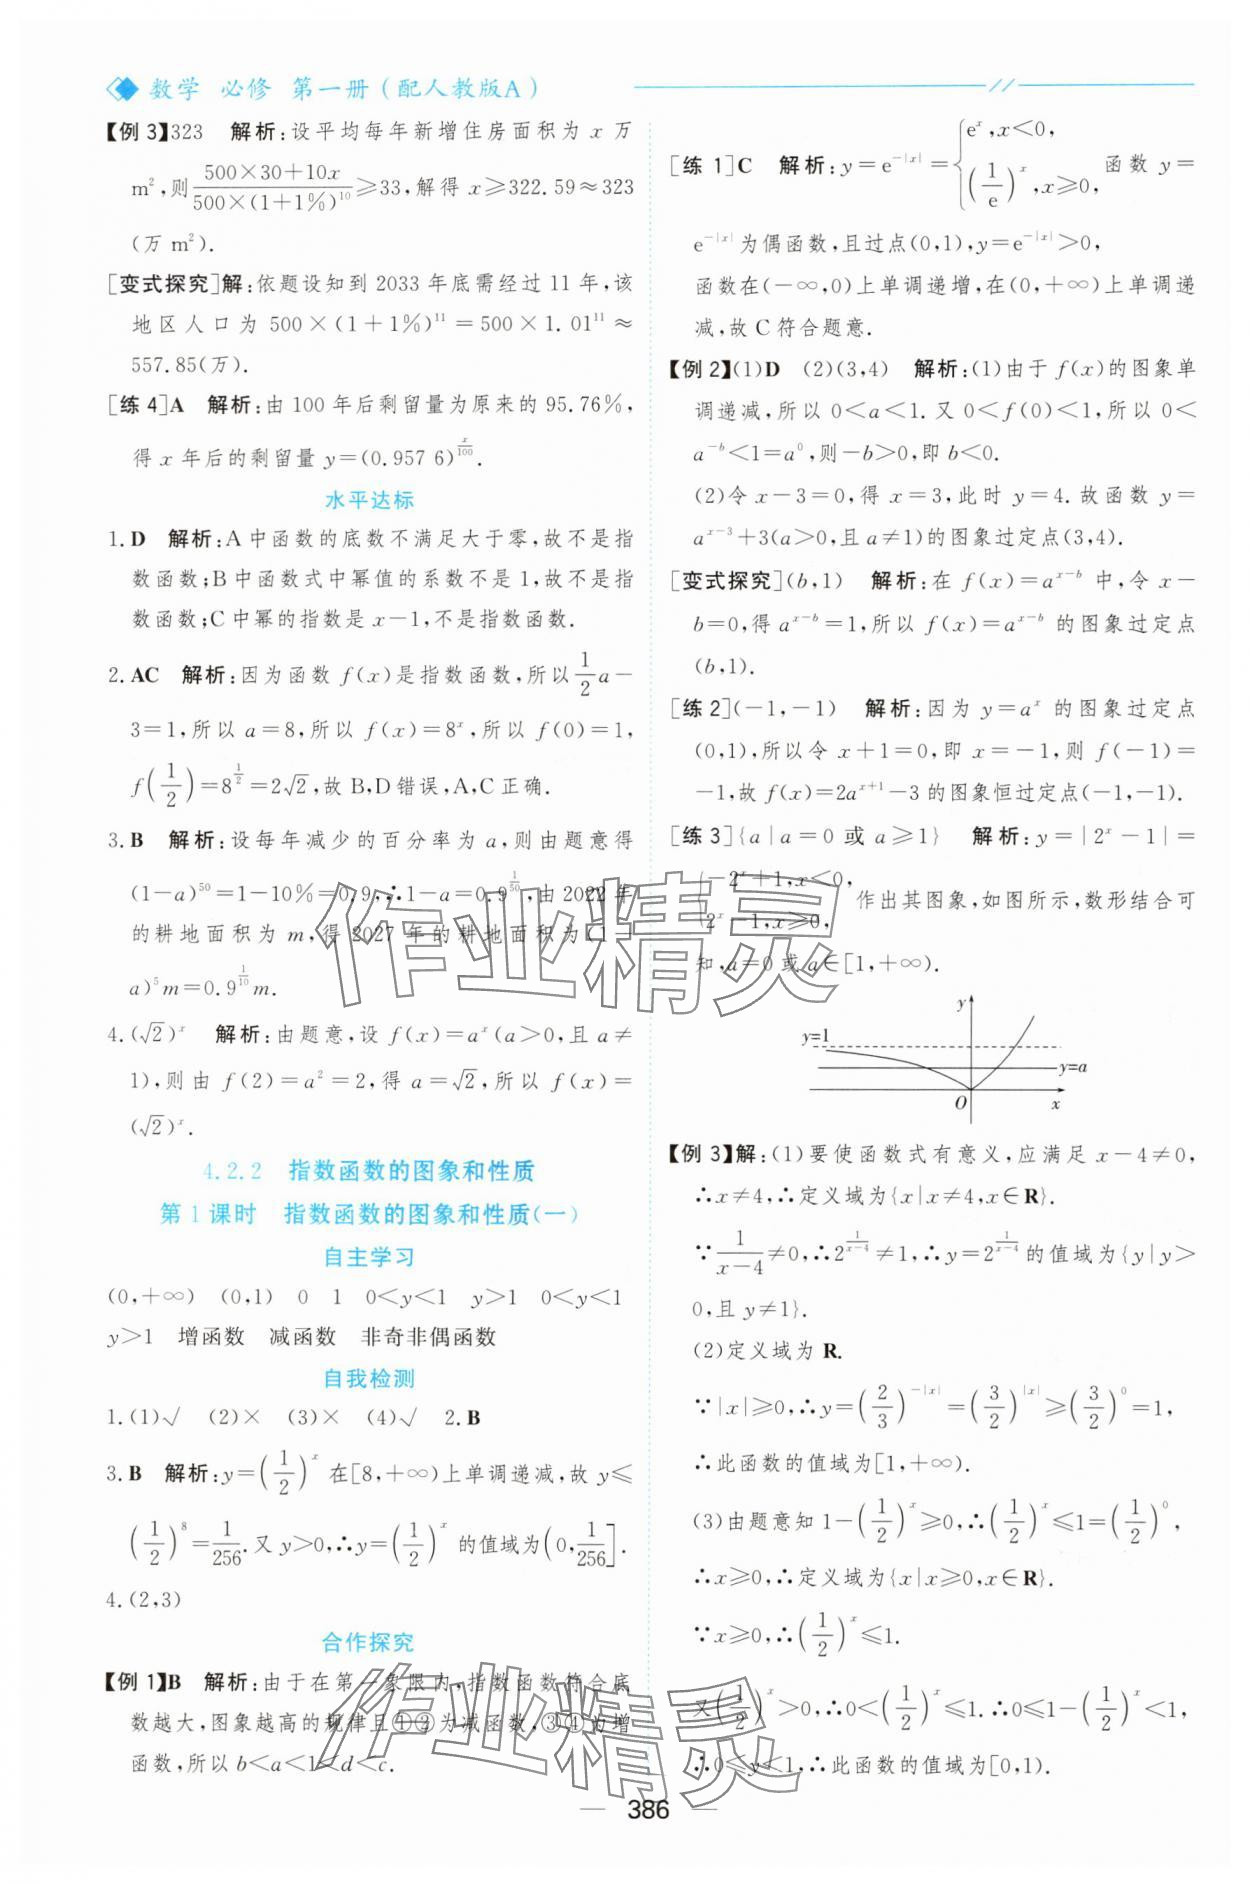 数学 必修 第一册(配人教版A)
【例3】323 解析:设平均每年新增住房面积为 x 万
m²,则(500×30+10x)/(500×(1+1%)¹⁰)≥33,解得 x≥322.59≈323
(万 m²).
[变式探究]解:依题设知到 2033 年底需经过 11 年,该
地区人口为 500×(1+1%)¹¹=500×1.01¹¹≈
557.85(万).
[练4]A 解析:由 100 年后剩留量为原来的 95.76%,
得 x 年后的剩留量 y=(0.957 6)^(x/100).
水平达标
1.D 解析:A 中函数的底数不满足大于零,故不是指
数函数;B 中函数式中幂值的系数不是 1,故不是指
数函数;C 中幂的指数是 x-1,不是指数函数.
2.AC 解析:因为函数 f(x)是指数函数,所以 1/2 a-
3=1,所以 a=8,所以 f(x)=8ˣ,所以 f(0)=1,
f(1/2)=8^(1/2)=2√2,故 B,D 错误,A,C 正确.
3.B 解析:设每年减少的百分率为 a,则由题意得
(1-a)⁵⁰=1-10%=0.9,∴1-a=0.9^(1/50),由 2022 年
的耕地面积为 m,得 2027 年的耕地面积为(1-
a)⁵m=0.9^(1/10)m.
4.(√2)ˣ 解析:由题意,设 f(x)=aˣ(a>0,且 a≠
1),则由 f(2)=a²=2,得 a=√2,所以 f(x)=
(√2)ˣ.
4.2.2 指数函数的图象和性质
第1课时 指数函数的图象和性质(一)
自主学习
(0,+∞) (0,1) 0 1 0<y<1 y>1 0<y<1
y>1 增函数 减函数 非奇非偶函数
自我检测
1.(1)√ (2)× (3)× (4)√ 2.B
3.B 解析:y=(1/2)ˣ在[8,+∞)上单调递减,故 y≤
(1/2)⁸=1/256.又 y>0,∴y=(1/2)ˣ的值域为(0,1/256].
4.(2,3)
合作探究
【例1】B 解析:由于在第一象限内,指数函数符合底
数越大,图象越高的规律且①②为减函数,③④为增
函数,所以 b<a<1<d<c.
[练1]C 解析:y=e^(-|x|)={eˣ,x<0, (1/e)ˣ,x≥0, 函数 y=
e^(-|x|)为偶函数,且过点(0,1),y=e^(-|x|)>0,
函数在(-∞,0)上单调递增,在(0,+∞)上单调递
减,故 C 符合题意.
【例2】(1)D (2)(3,4) 解析:(1)由于 f(x)的图象单
调递减,所以 0<a<1.又 0<f(0)<1,所以 0<
a^(-b)<1=a⁰,则-b>0,即 b<0.
(2)令 x-3=0,得 x=3,此时 y=4.故函数 y=
a^(x-3)+3(a>0,且 a≠1)的图象过定点(3,4).
[变式探究](b,1) 解析:在 f(x)=a^(x-b)中,令 x-
b=0,得 a^(x-b)=1,所以 f(x)=a^(x-b)的图象过定点
(b,1).
[练2](-1,-1) 解析:因为 y=aˣ 的图象过定点
(0,1),所以令 x+1=0,即 x=-1,则 f(-1)=
-1,故 f(x)=2a^(x+1)-3 的图象恒过定点(-1,-1).
[练3]{a|a=0 或 a≥1} 解析:y=|2ˣ-1|=
{-2ˣ+1,x<0, 2ˣ-1,x≥0, 作出其图象,如图所示,数形结合可
知,a=0 或 a∈[1,+∞).
y
y=1
y=a
O
x
【例3】解:(1)要使函数式有意义,应满足 x-4≠0,
∴x≠4,∴定义域为{x|x≠4,x∈R}.
∵1/(x-4)≠0,∴2^(1/(x-4))≠1,∴y=2^(1/(x-4))的值域为{y|y>
0,且 y≠1}.
(2)定义域为 R.
∵|x|≥0,∴y=(2/3)^(-|x|)=(3/2)^(|x|)≥(3/2)⁰=1,
∴此函数的值域为[1,+∞).
(3)由题意知 1-(1/2)ˣ≥0,∴(1/2)ˣ≤1=(1/2)⁰,
∴x≥0,∴定义域为{x|x≥0,x∈R}.
∵x≥0,∴(1/2)ˣ≤1.
又(1/2)ˣ>0,∴0<(1/2)ˣ≤1.∴0≤1-(1/2)ˣ<1,
∴0≤y<1,∴此函数的值域为[0,1).
386
作业精灵
作业精灵